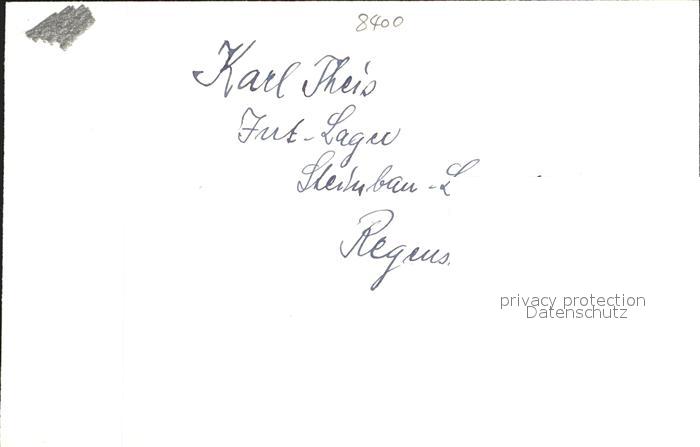 8400
Karl Theis
Int-Lager
Steinbau-L
Regens.
privacy protection
Datenschutz